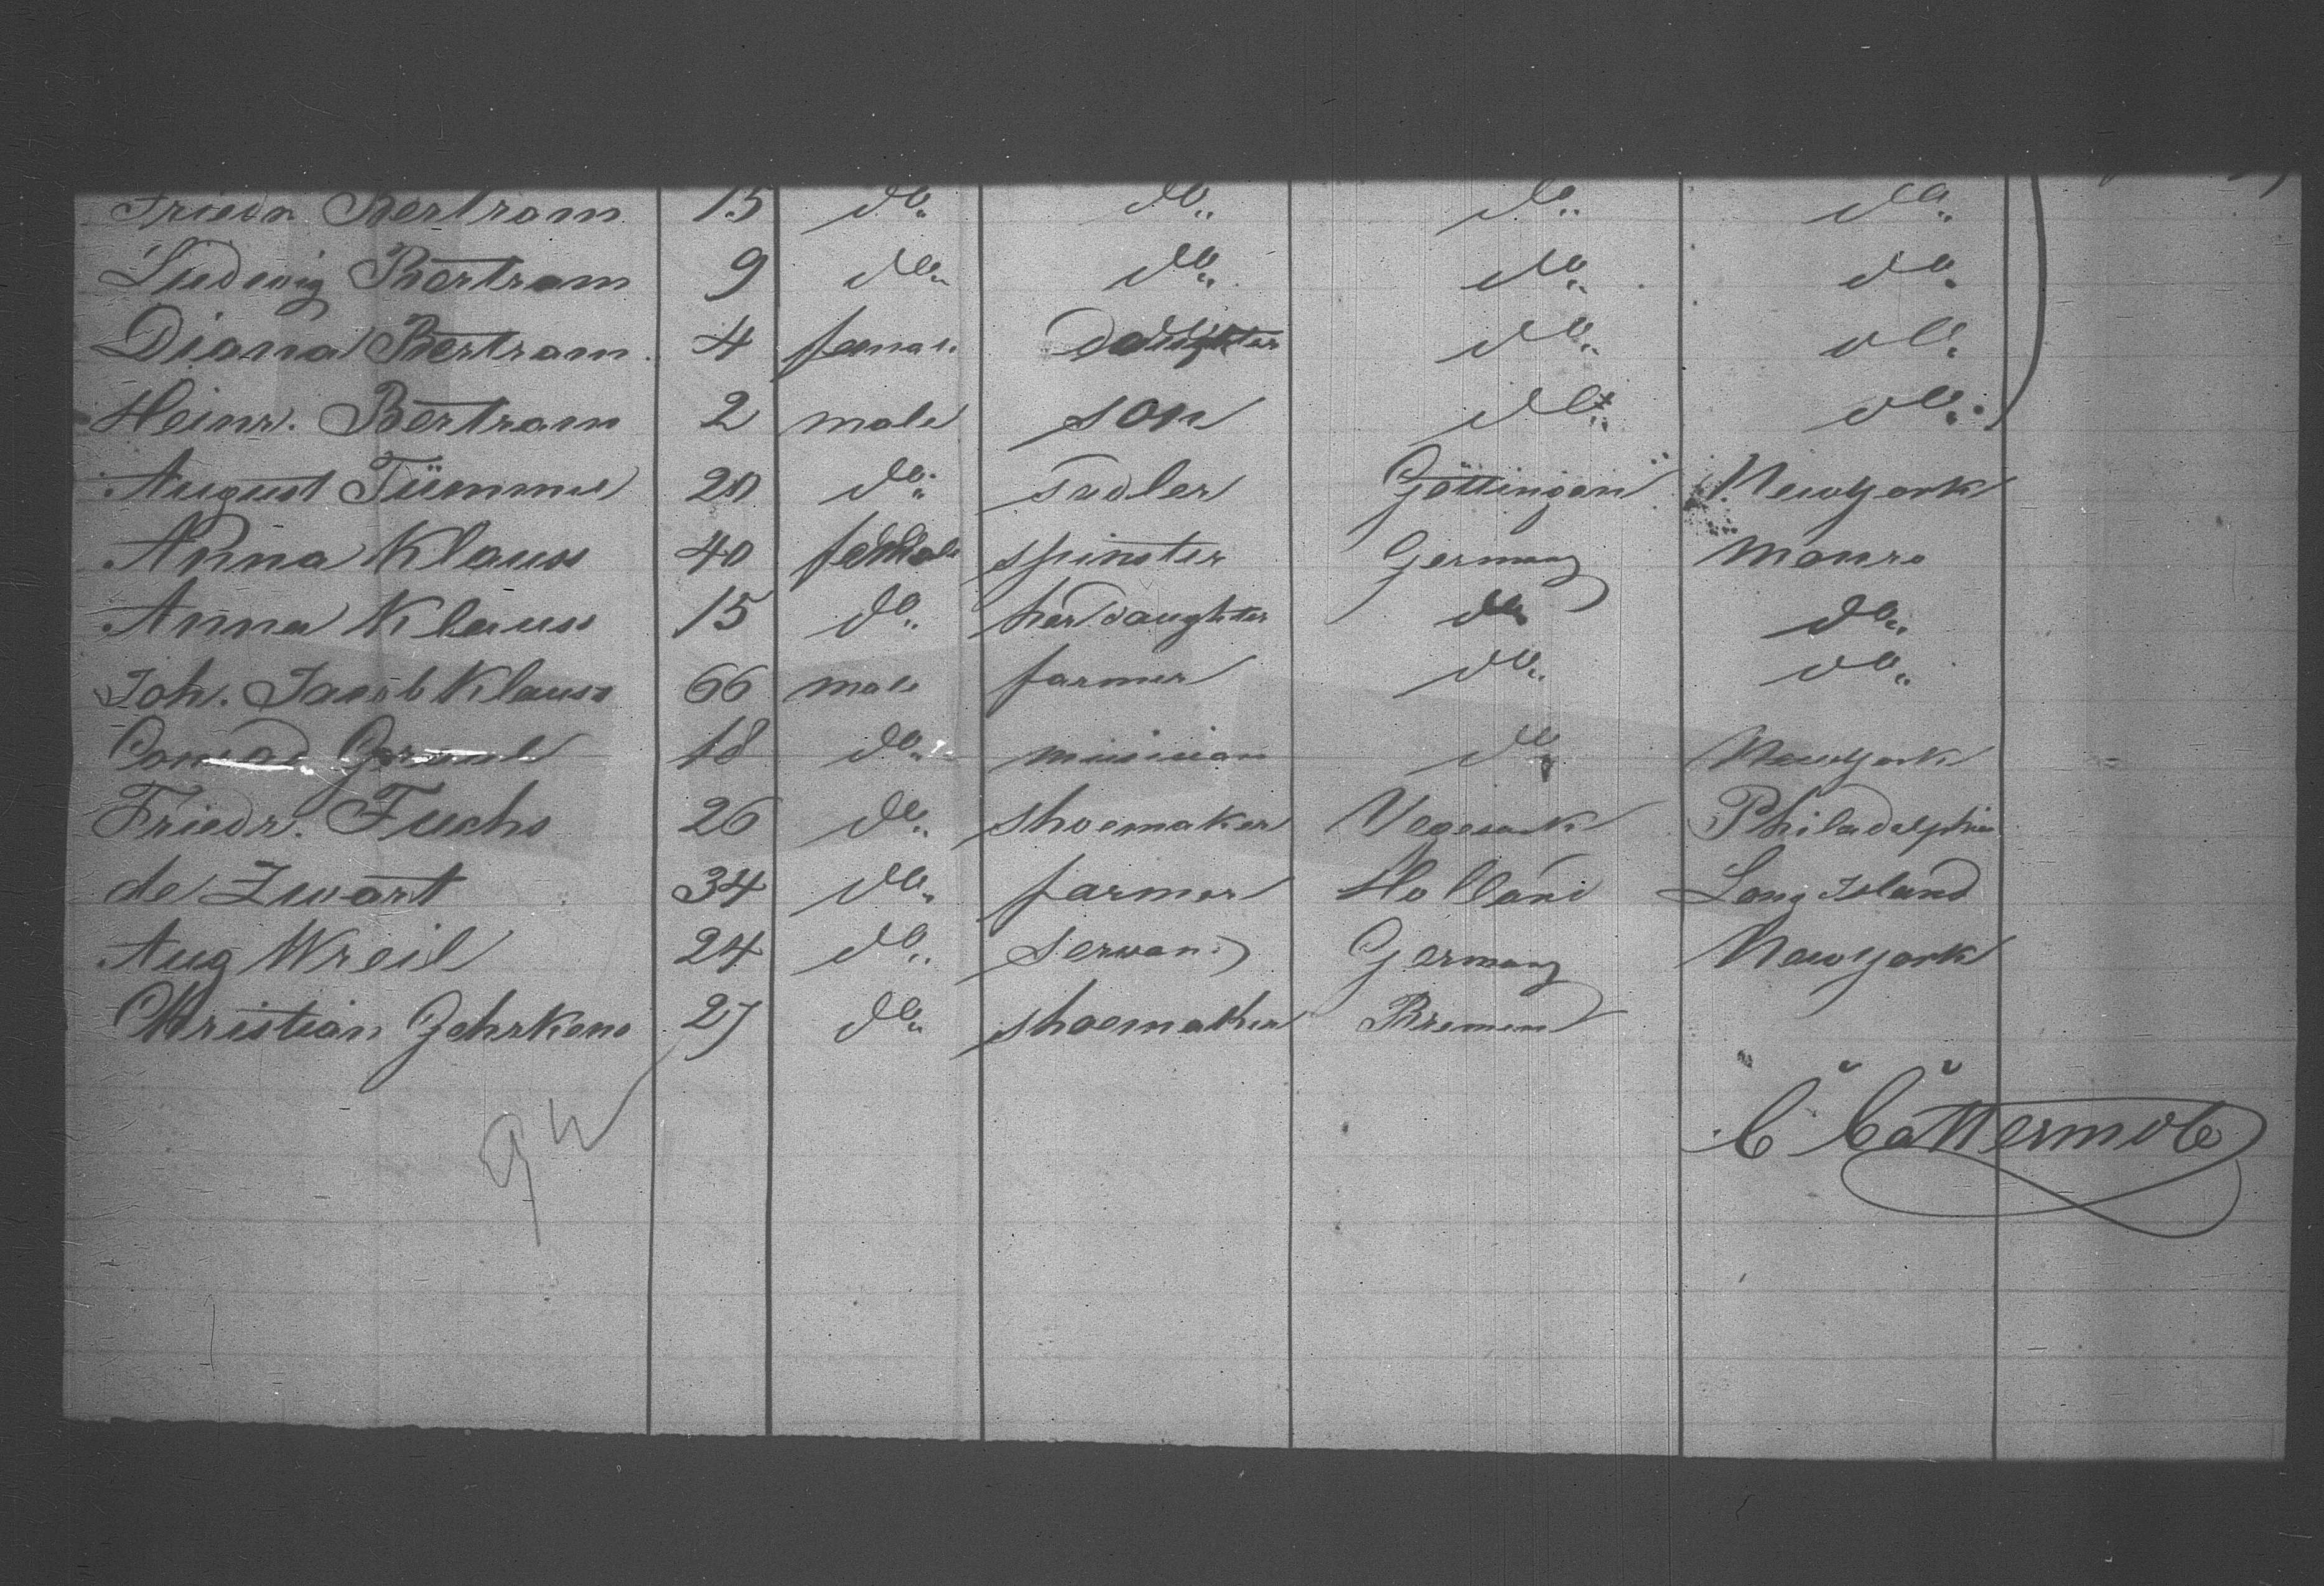 Friedr. Bertram 15 do. do. do. do.
Ludwig Bertram 9 do. do. do. do.
Diana Bertram 4 female daughter do. do.
Heinr. Bertram 2 male son do. do.
August Tümmel 20 do. sadler Göttingen New York
Anna Klauss 40 female spinster Germany Monro
Anna Klauss 15 do. her daughter do. do.
Joh. Jacob Klauss 66 male farmer do. do.
Conrad 18 do. musician do. New York
Friedr. Fuchs 26 do. shoemaker Vegesack Philadelphia
de Zwart 34 do. farmer Holland Long Island
Aug Wreil 24 do. servant Germany New York
Christian Gehrkens 27 do. shoemaker Bremen
C Cattermole